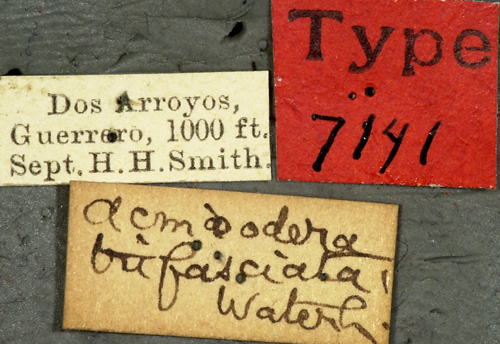 Type
7141
Dos Arroyos,
Guerrero, 1000 ft.
Sept. H. H. Smith.
Acmaeodera
trifasciata
Waterh.